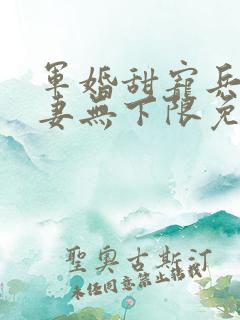 軍婚甜寵兵
妻無下限免
聖奧古斯汀
未經同意禁止轉載